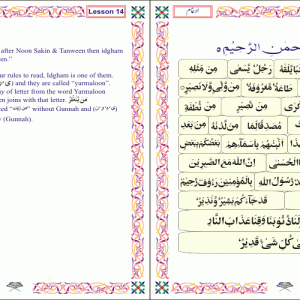 Lesson 14
after Noon Sakin & Tanween then idgham
en."
ur rules to read, Idgham is one of them.
) and they are called "yarmaloon".
ny of letter from the word Yarmaloon
en joins with that letter.
ed " " without Gunnah and (
y (Gunnah).
ادغام
حْمٰنِ الرَّحِيْمِ
رَجُلٌ يَّسْعٰى مِنْ مِّثْلِهٖ
طَاعَةٌ مَّعْرُوْفَةٌ مِنْ وَّلِيٍّ وَّلَا نَصِيْرٍ
مِنْ نُّطْفَةٍ
مُصَدِّقًا لِّمَا مِنْ لَّدُنْهُ
اَنْبِئْهُمْ بِاَسْمَآئِهِمْ بَعْضُكُمْ بِبَعْضٍ
الْحُسْنٰى اِنَّ اللهَ مَعَ الصّٰبِرِيْنَ
رَسُوْلُ اللهِ بِالْمُؤْمِنِيْنَ رَءُوْفٌ رَّحِيْمٌ
قَدْ جَآءَكُمْ بَشِيْرٌ وَّنَذِيْرٌ
لَنَا ذُنُوْبَنَا وَقِنَا عَذَابَ النَّارِ
كُلِّ شَيْءٍ قَدِيْرٌ